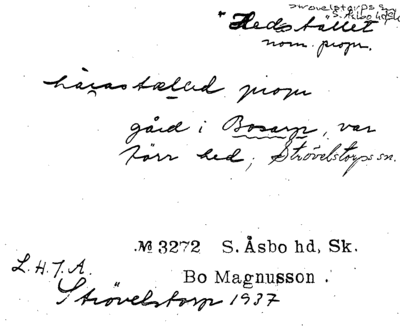 Strövelstorps sn
"S. Åsbo hd, Sk.
"Hedstallet
nom. propr.
propr
gård i Bosarp, var
förr hed, Strövelstorps sn.
№ 3272 S. Åsbo hd, Sk.
L.H.J.A. Bo Magnusson.
Strövelstorp 1937